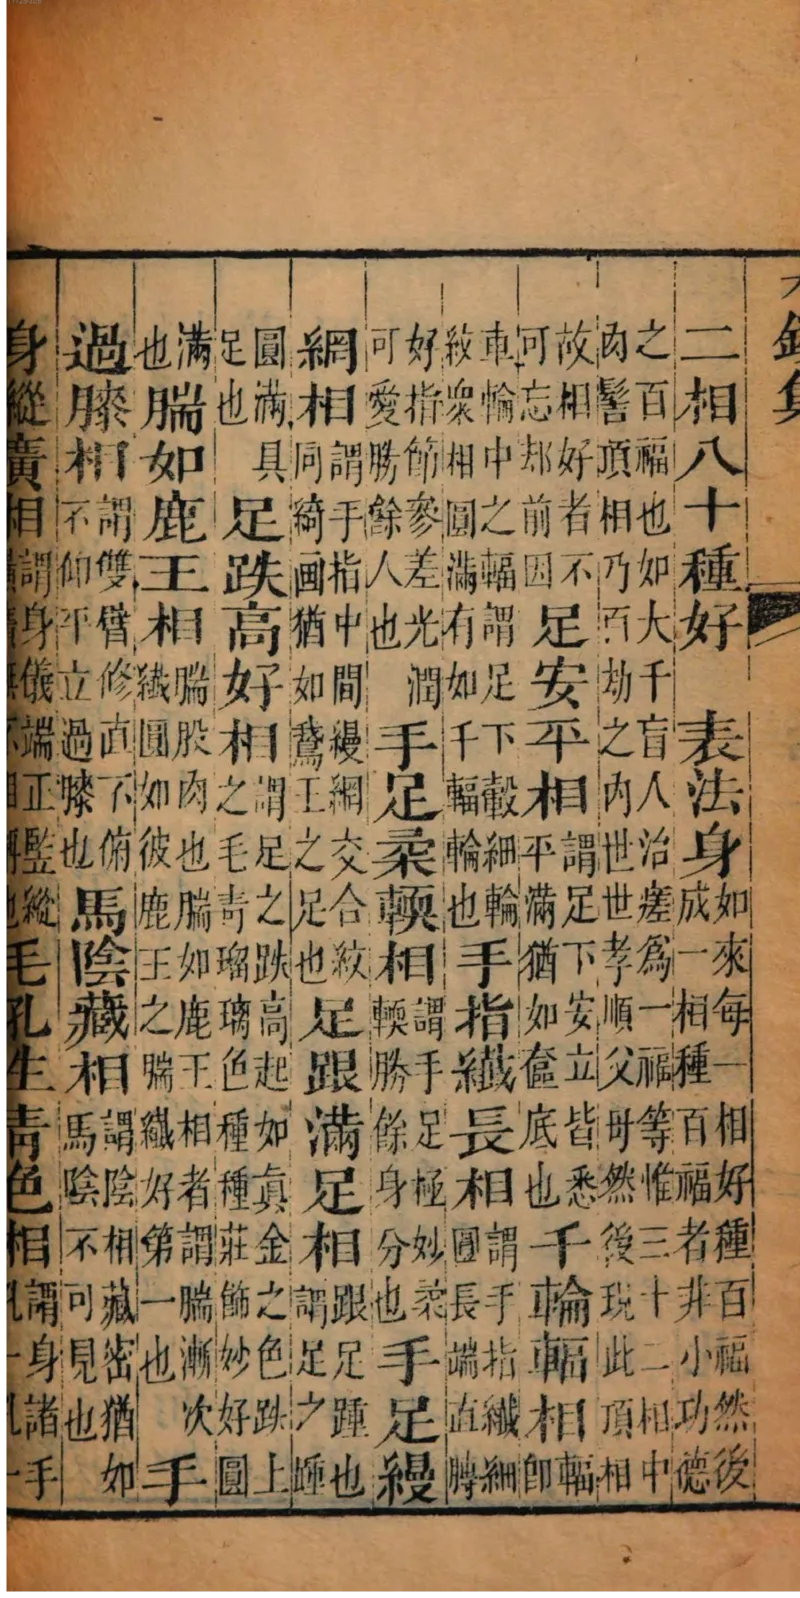 二相八十種好　表法身如來每一相好種百福然後成一相種百福者非小功德
之百福也如大千盲人治瘥爲一福等惟三十二相中肉髻頂相乃百劫之內世世孝順父母然後現此頂相
故相好者不可忘却前因足安平相謂足下安立皆悉平滿猶如奩底也千輪輻相輻即
車輪中之輻謂足下轂細輪紋衆相圓滿有如千輻輪也手指纖長相謂手指纖細圓長端直
好指節參差光潤可愛勝餘人也手足柔輭相謂手足極妙柔輭勝餘身分也手足縵
網相謂手指中間縵網交合紋同綺画猶如鵞王之足也足跟滿足相跟足踵也謂足之踵
圓滿具足也足趺高好相謂足之趺高起如眞金之色趺上之毛青瑠璃色種種莊飾妙好圓
滿也腨如鹿王相腨股肉也腨如鹿王相者謂腨漸次纖圓如彼鹿王之腨纖好第一也手
過膝相謂雙臂修直不俯不仰平立過膝也馬陰藏相謂陰相藏密猶如馬陰不可見也
身縱廣相謂身儀端正竪縱毛孔生青色相謂身諸手